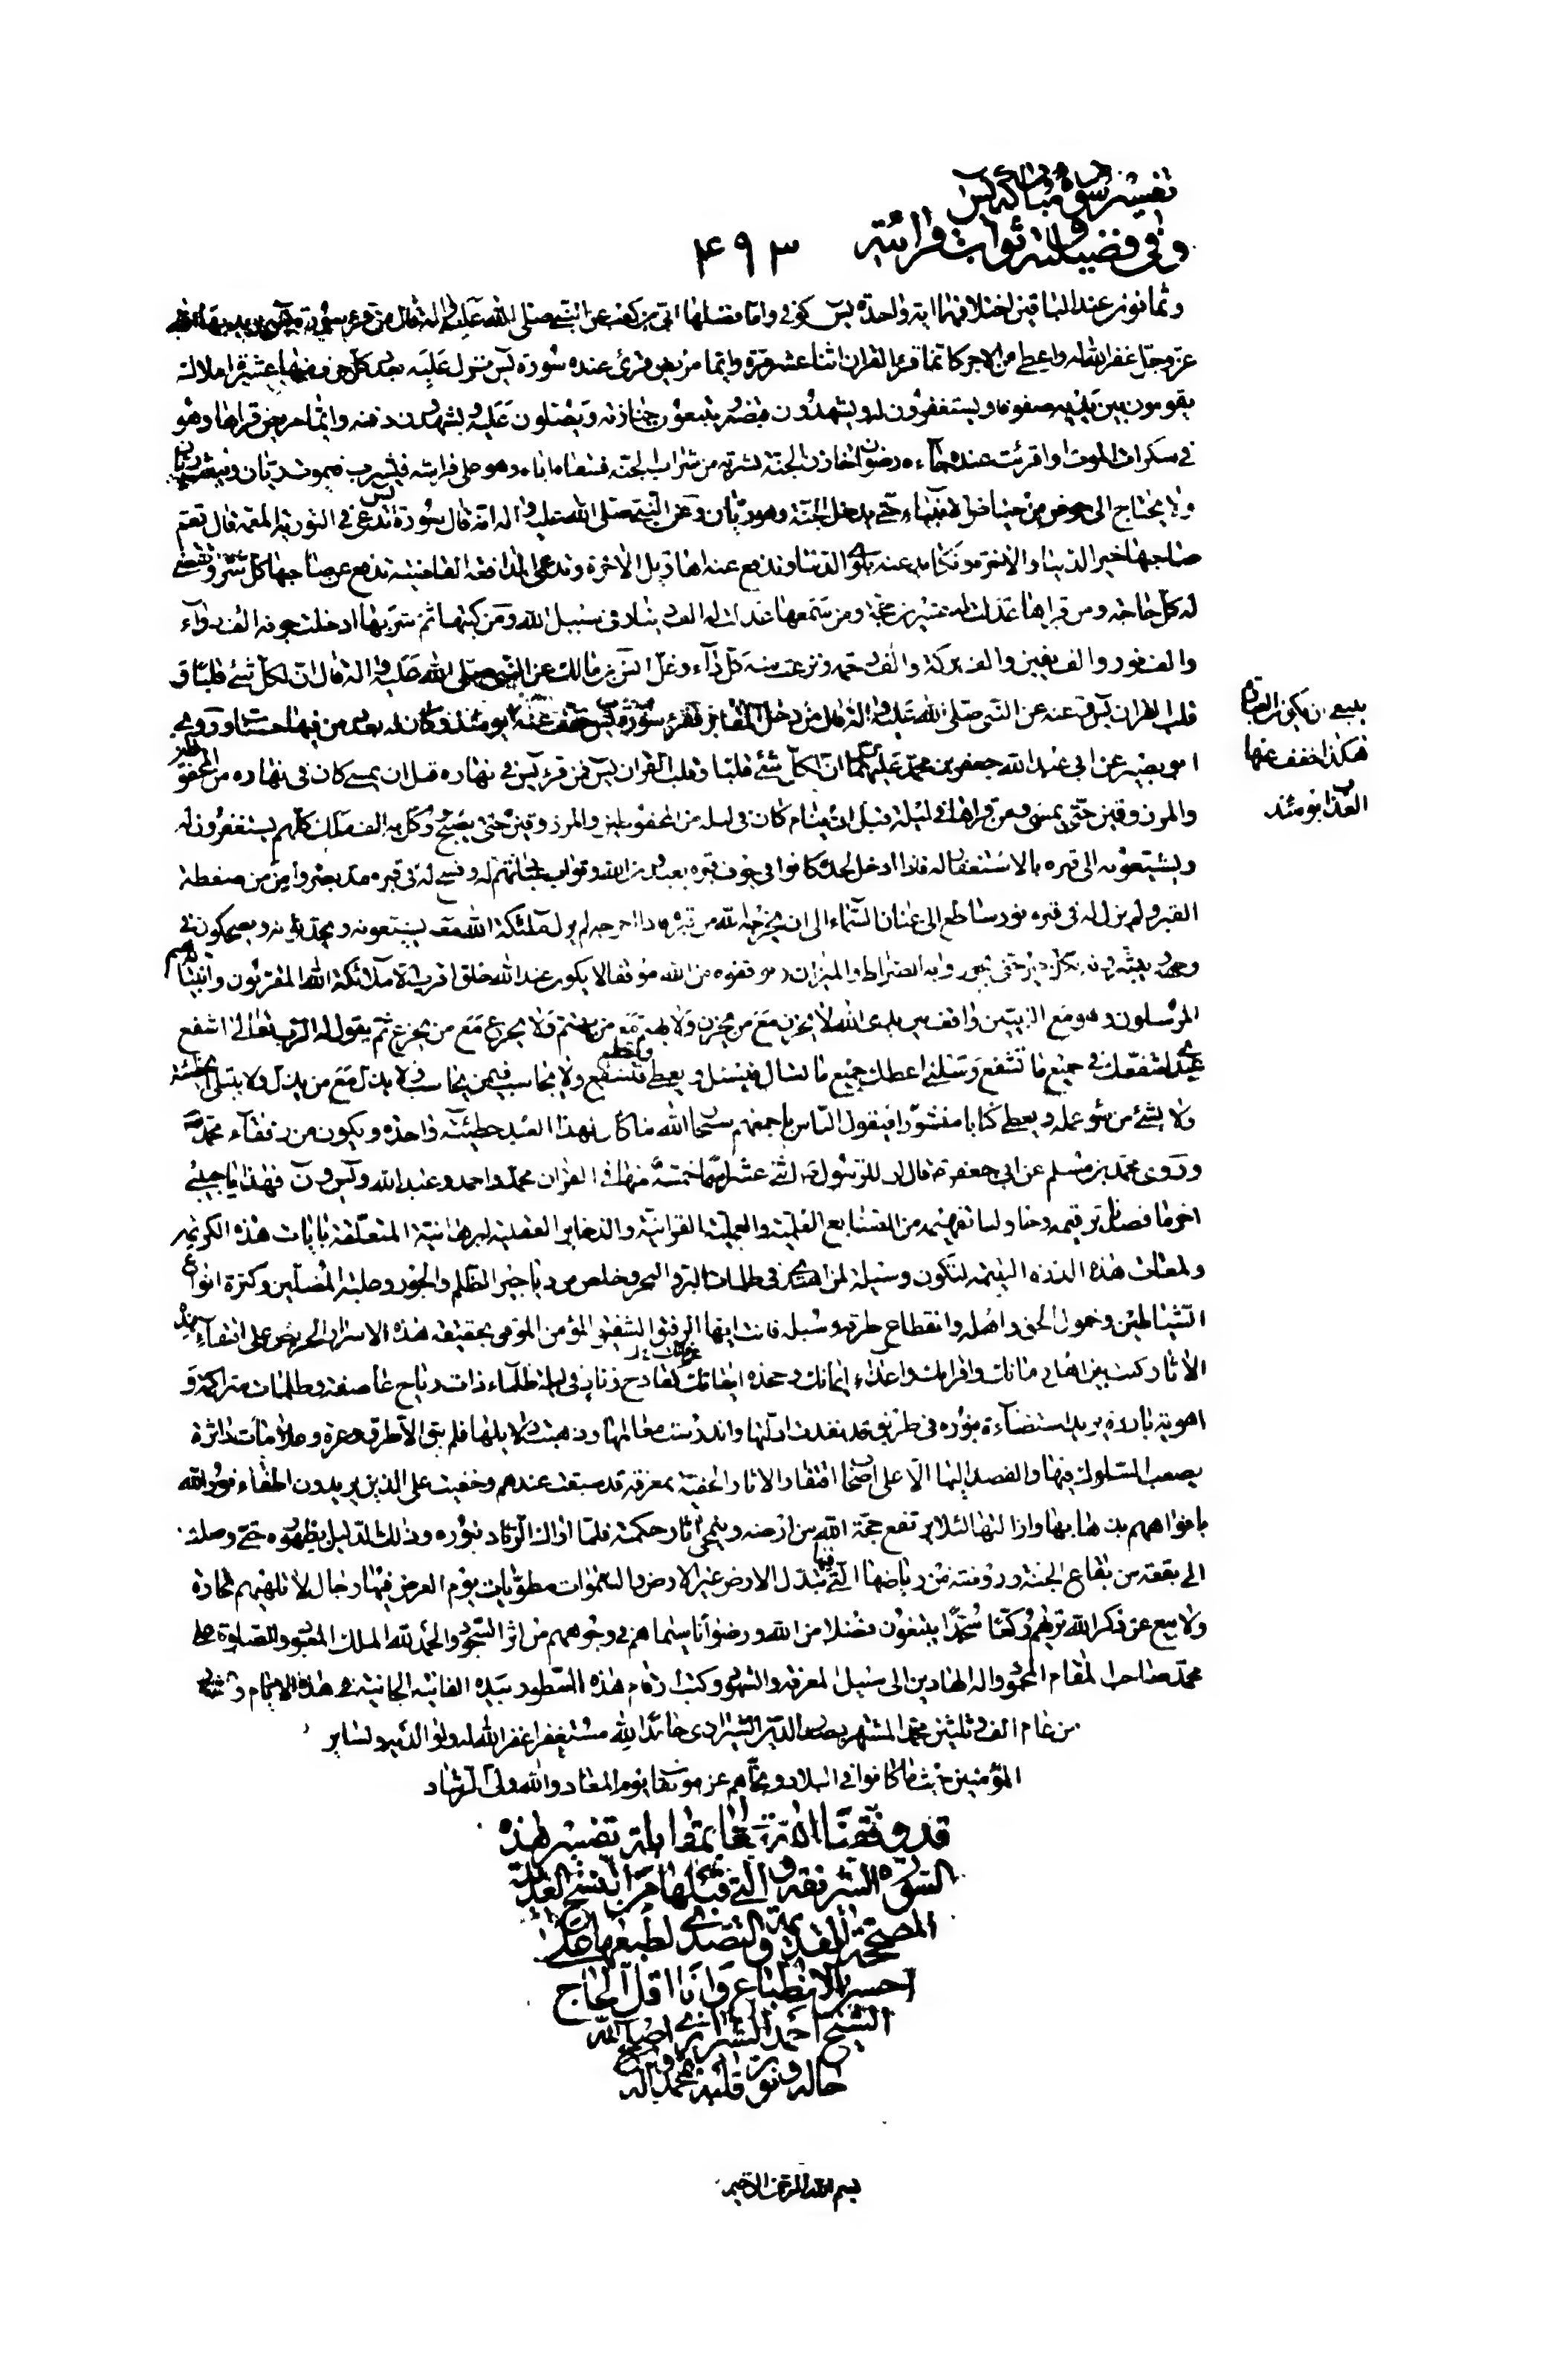 تفسير سورة مباركة يس
و في فضيلة و ثواب قرائته ۴۹۳
وثمانون عند الباقين اختلافها اية واحدة يس كوفي واما فضلها ابي بن كعب عن النبي صلى الله عليه واله قال من قرء سورة يس يريد بها الله
عز وجل غفر الله له واعطى من الاجر كانما قرء القران اثنا عشر مرة وايما مريض قرئ عنده سورة يس نزل عليه بعدد كل حرف منها عشرة املاك
يقومون بين يديه صفوفا ويستغفرون له ويشهدون قبضه ويتبعون جنازته ويصلون عليه ويشهدون دفنه وايما مريض قراها وهو
في سكرات الموت او قرئت عنده جاءه رضوان خازن الجنة بشربة من شراب الجنة فسقاه اياه وهو على فراشه فيشرب فيموت ريان ويبعث ريان
ولا يحتاج الى حوض من حياض الانبياء حتى يدخل الجنة وهو ريان وعن النبي صلى الله عليه واله انه قال سورة يس تدعى في التورية المعمة قال تعم
صاحبها خير الدنيا والاخرة وتكابد عنه بلوى الدنيا وتدفع عنه اهاويل الاخرة وتدعى المدافعة القاضية تدفع عن صاحبها كل شر وتقضي
له كل حاجة ومن قراها عدلت له عشرين حجة ومن سمعها عدلت له الف دينار في سبيل الله ومن كتبها ثم شربها ادخلت جوفه الف دواء
والف نور والف يقين والف بركة والف رحمة ونزعت منه كل داء وعن انس بن مالك عن النبي صلى الله عليه واله قال ان لكل شئ قلبا و
قلب القران يس وعنه عن النبي صلى الله عليه واله قال من دخل المقابر فقرء سورة يس خفف عنهم يومئذ وكان له بعدد من فيها حسنات وروى
ابو بصير عن ابي عبد الله جعفر بن محمد عليهما السلام ان لكل شئ قلبا وقلب القران يس فمن قرء يس في نهاره قبل ان يمسي كان في نهاره من المحفوظين
والمرزوقين حتى يمسي ومن قراها في ليلة قبل ان ينام كان في ليله من المحفوظين والمرزوقين حتى يصبح وكل به الف ملك كلهم يستغفرون له
ويشيعونه الى قبره بالاستغفار له فاذا ادخل لحده كانوا في جوف قبره يعبدون الله وثواب عبادتهم له وفسح له في قبره مد بصره وامن من ضغطة
القبر ولم يزل له في قبره نور ساطع الى عنان السماء الى ان يخرجه الله من قبره فاذا اخرجه لم يزل ملئكة الله معه يشيعونه ويحدثونه ويضحكون في
وجهه ويبشرونه بكل خير حتى يجوزوا به الصراط والميزان ويوقفوه من الله موقفا لا يكون عند الله خلق اقرب منه الا ملائكة الله المقربون وانبيائه
المرسلون وهو مع النبيين واقف بين يدي الله لا يحزن مع من يحزن ولا يهتم مع من يهتم ولا يجزع مع من يجزع ثم يقول له الرب تعالى اشفع
عبدي اشفعك في جميع ما تشفع وسلني اعطك جميع ما تسال فيسئل ويعطى ويشفع فيشفع ولا يحاسب فيمن يحاسب ولا يذل مع من يذل ولا يبكت بخطيئة
ولا بشئ من سوء عمله ويعطى كتابا منشورا فيقول الناس باجمعهم سبحان الله ما كان لهذا العبد خطيئة واحدة ويكون من رفقاء محمد
وروى محمد بن مسلم عن ابي جعفر قال ان للرسول اثني عشر اسما خمسة منها في القران محمد واحمد وعبد الله ويس ون فهذا ما جئ
ولمعات هذه الدرة اليتيمة لتكون وسيلة لمن اهتدى في ظلمات البر والبحر وخلص من دياجير الظلم والجور وغلبة المضلين وكثرة انواع
الشياطين وخمول الحق واهله وانقطاع طرقه وسبله فانت ايها الرفيق الشفيق المؤمن الموقن بحقيقة هذه الاسرار الحريص على اقتفاء
الاثار كنت بين اهل زمانك واقرانك كقادح زناد في ليلة ظلماء ذات رياح عاصفة وظلمات متراكمة و
اهوية باردة يريد استضاءة بنوره في طريق قد فقدت ادلتها واندرست معالمها وذهبت دلايلها فلم يبق الا طرق وعرة وعلامات داثرة
يصعب السلوك فيها والقصد اليها الا على اصحاب اقتفاء الاثار الخفية بمعرفة قد سبقت عندهم وخفيت على الذين يريدون اطفاء نور الله
بافواههم بذهابها وازالتها لئلا يرتفع حجة الله من ارضه وينمحي اثار حكمته فلما اراك الزناد بنوره وذلك الدليل بظهوره حتى وصلت
الى بقعة من بقاع الجنة وروضة من رياضها التي تبدل فيها الارض غير الارض والسموات مطويات يوم العرض فيها رجال لا تلهيهم تجارة
ولا بيع عن ذكر الله تريهم ركعا سجدا يبتغون فضلا من الله ورضوانا سيماهم في وجوههم من اثر السجود والحمد لله الملك المعبود والصلوة على
محمد صاحب المقام المحمود واله الهادين الى سبيل المعرفة والشهود وكتب راقم هذه السطور بيده الفانية الجانية في هذه الايام
من عام الف وثلثين محمد المشتهر بصدر الدين الشيرازي حامدا لله مستغفرا غفر الله له ولوالديه ولساير
المؤمنين حيثما كانوا في البلاد ونجاهم عن موبقات يوم المعاد والله ولي الرشاد
قد وفقنا الله تعالى بمقابلة تفسير هذه
السورة الشريفة والتي قبلها من النسخ العديدة
المصححة القديمة والتصدى لطبعها على
احسن الانطباع وانا اقل الحاج
الشيخ احمد الشيرازي اصلح الله
حاله ونور قلبه بمحمد واله
بسم الله الرحمن الرحيم
ينبغي ان يكون العبارة
هكذا خفف عنها
العذاب يومئذ